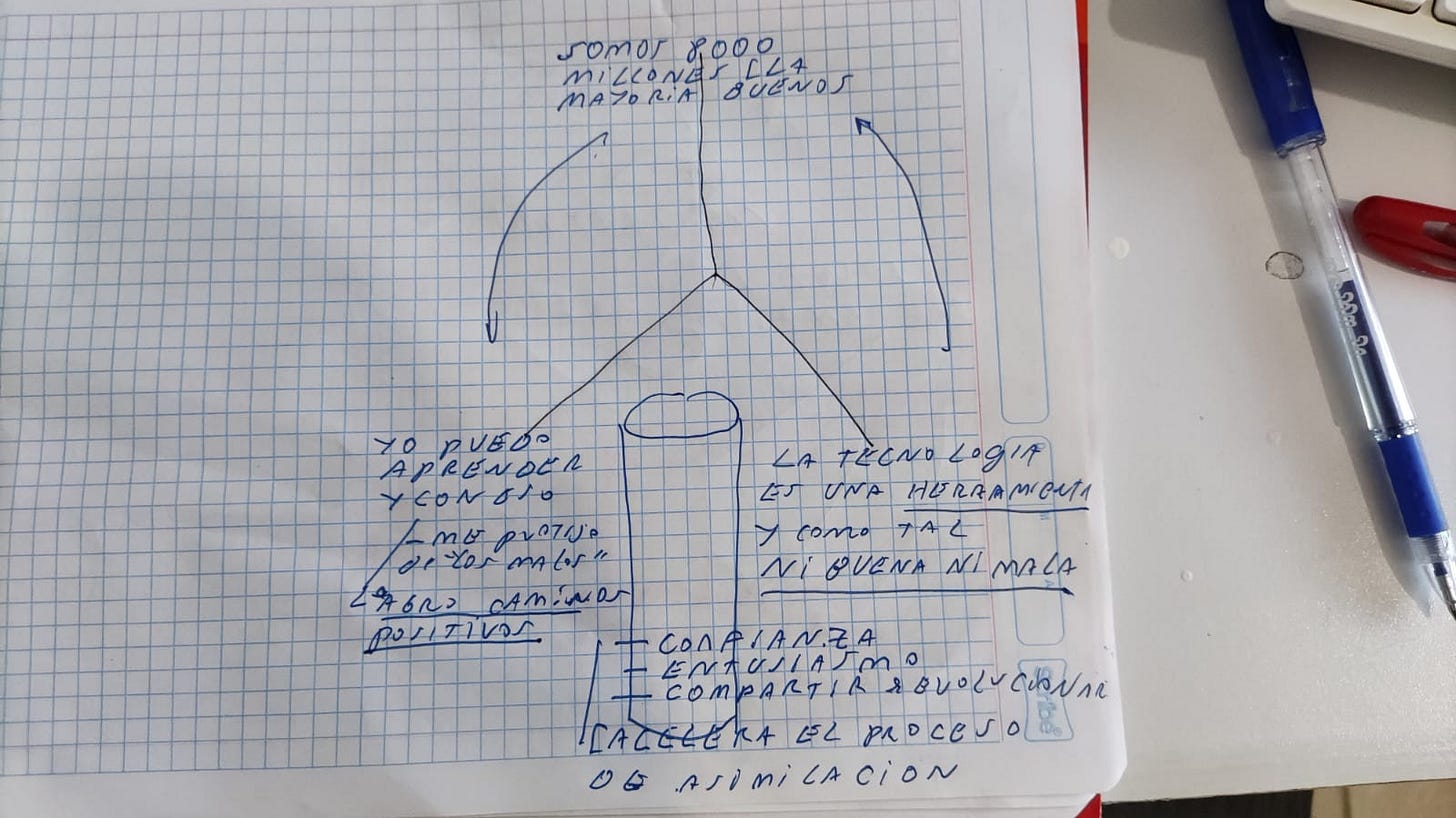 SOMOS 8000
MILLONES [LA
MAYORIA BUENOS
YO PUEDO
APRENDER
Y CON ESO
- ME PROTEJO
DE "LOS MALOS"
ABRO CAMINOS
POSITIVOS
LA TECNOLOGIA
ES UNA HERRAMIENTA
Y COMO TAL
NI BUENA NI MALA
- CONFIANZA
- ENTUSIASMO
- COMPARTIR EVOLUCIONAR
[ACELERA EL PROCESO
DE ASIMILACION
scribe